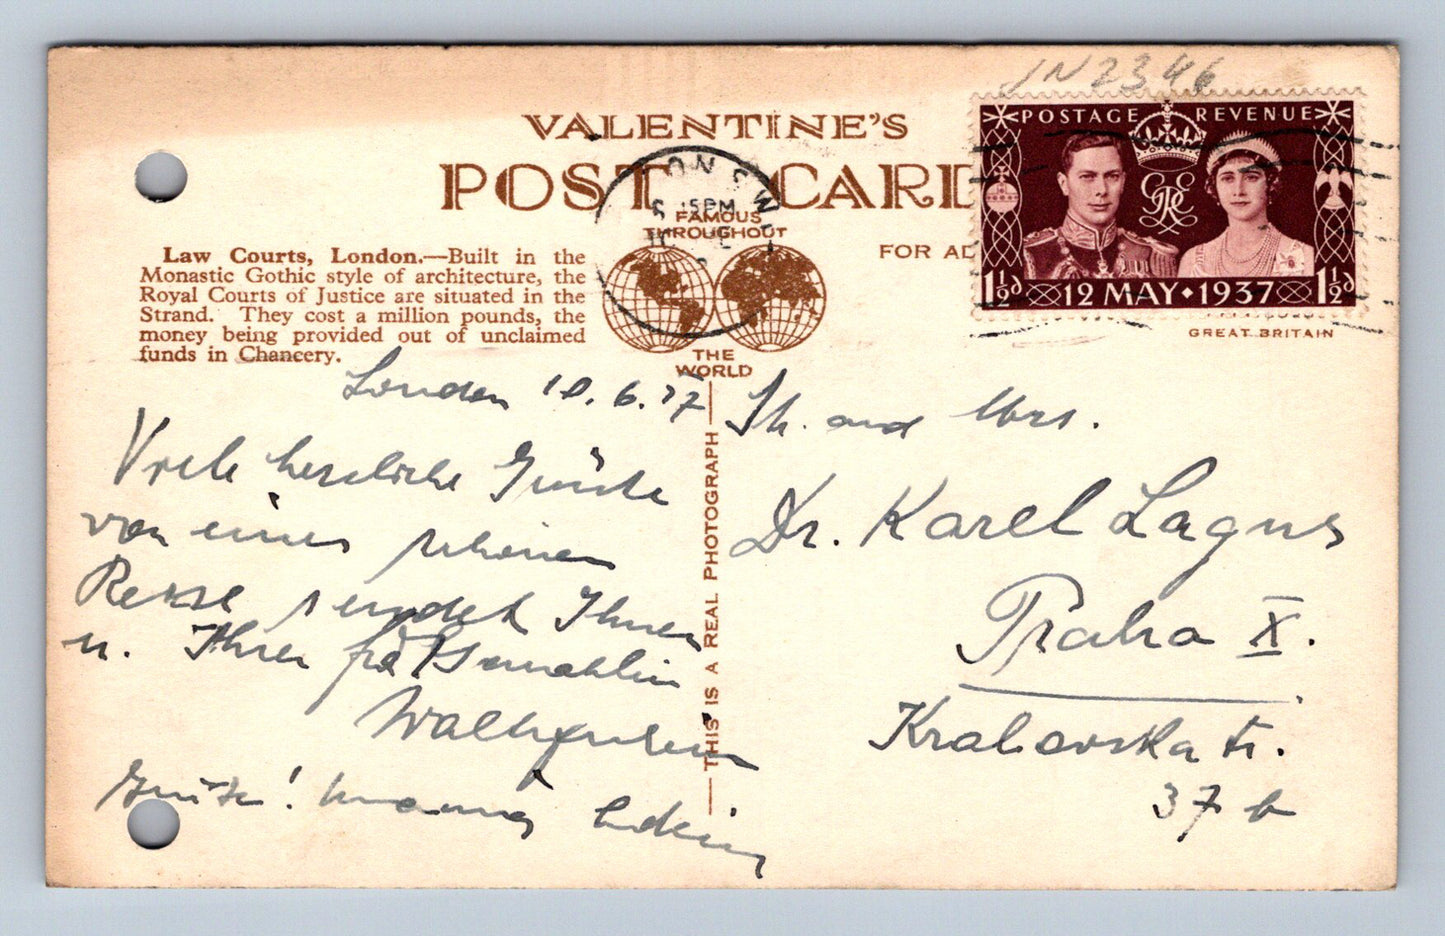 IN2346
VALENTINE'S
POST CARD
FAMOUS
THROUGHOUT
THE
WORLD
FOR AD
POSTAGE REVENUE
1½d 12 MAY • 1937 1½d
GREAT BRITAIN
LONDON S.W.
5 15 PM
Law Courts, London.—Built in the
Monastic Gothic style of architecture, the
Royal Courts of Justice are situated in the
Strand. They cost a million pounds, the
money being provided out of unclaimed
funds in Chancery.
THIS IS A REAL PHOTOGRAPH
London 10.6.37
Viele herzliche Grüsse
von einer schönen
Reise sendet Ihnen
u. Ihrer Gemahlin
Grüsse!
and Mrs.
Dr. Karel Lagus
Praha X.
Kralovska tr.
37 b